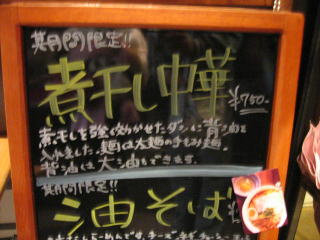 期間限定!!
煮干し中華
¥750-
煮干しを強く効かせたダシに背油を
入れました。麺は大麺の手もみ麺。
背油は大油もできます。
期間限定!!
油そば